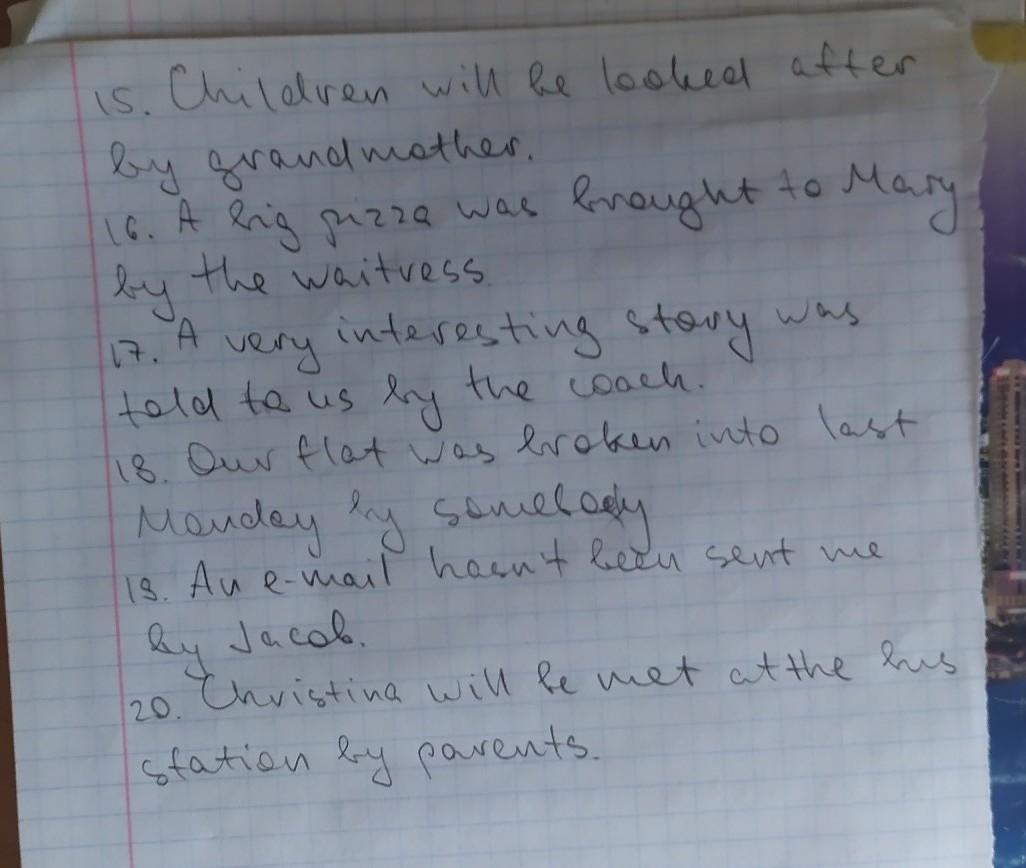 15. Children will be looked after
by grandmother.
16. A big pizza was brought to Mary
by the waitress.
17. A very interesting story was
told to us by the coach.
18. Our flat was broken into last
Monday by somebody
19. An e-mail hasn't been sent me
by Jacob.
20. Christina will be met at the bus
station by parents.